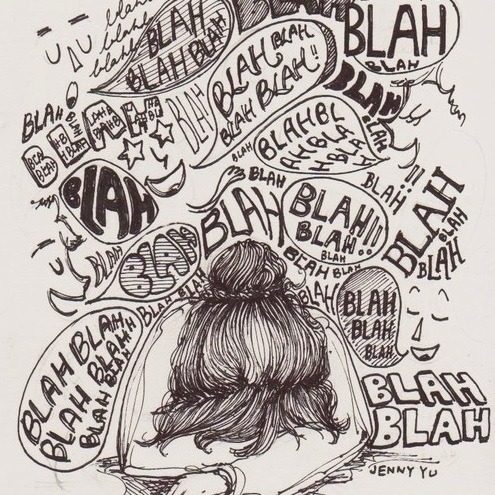 blah
blah
blah
BLAH
BLAH BLAH
BLAH
BLAH
BLAH
BLAH
BLAH BLAH
BLAH !!
BLAH BLAH
BLAH
BLAH
BLAH
BLAH
BLAH
BLAH
BLAHBL
AHBL
H BLA
BLAH
BLAH
BLAH
!!
BLAH
BLAH
BLAH
BLAH
BLAH!!
BLAH..
BLAH
BLAH
BLAH
BLAH
BLAH
BLAH
BLAH
BLAH
BLAH
BLAH
BLAH
BLAH
BLAH
BLAH BLAH
BLAH BLAH
BLAH BLAH
BLAH
BLAH
JENNY YU